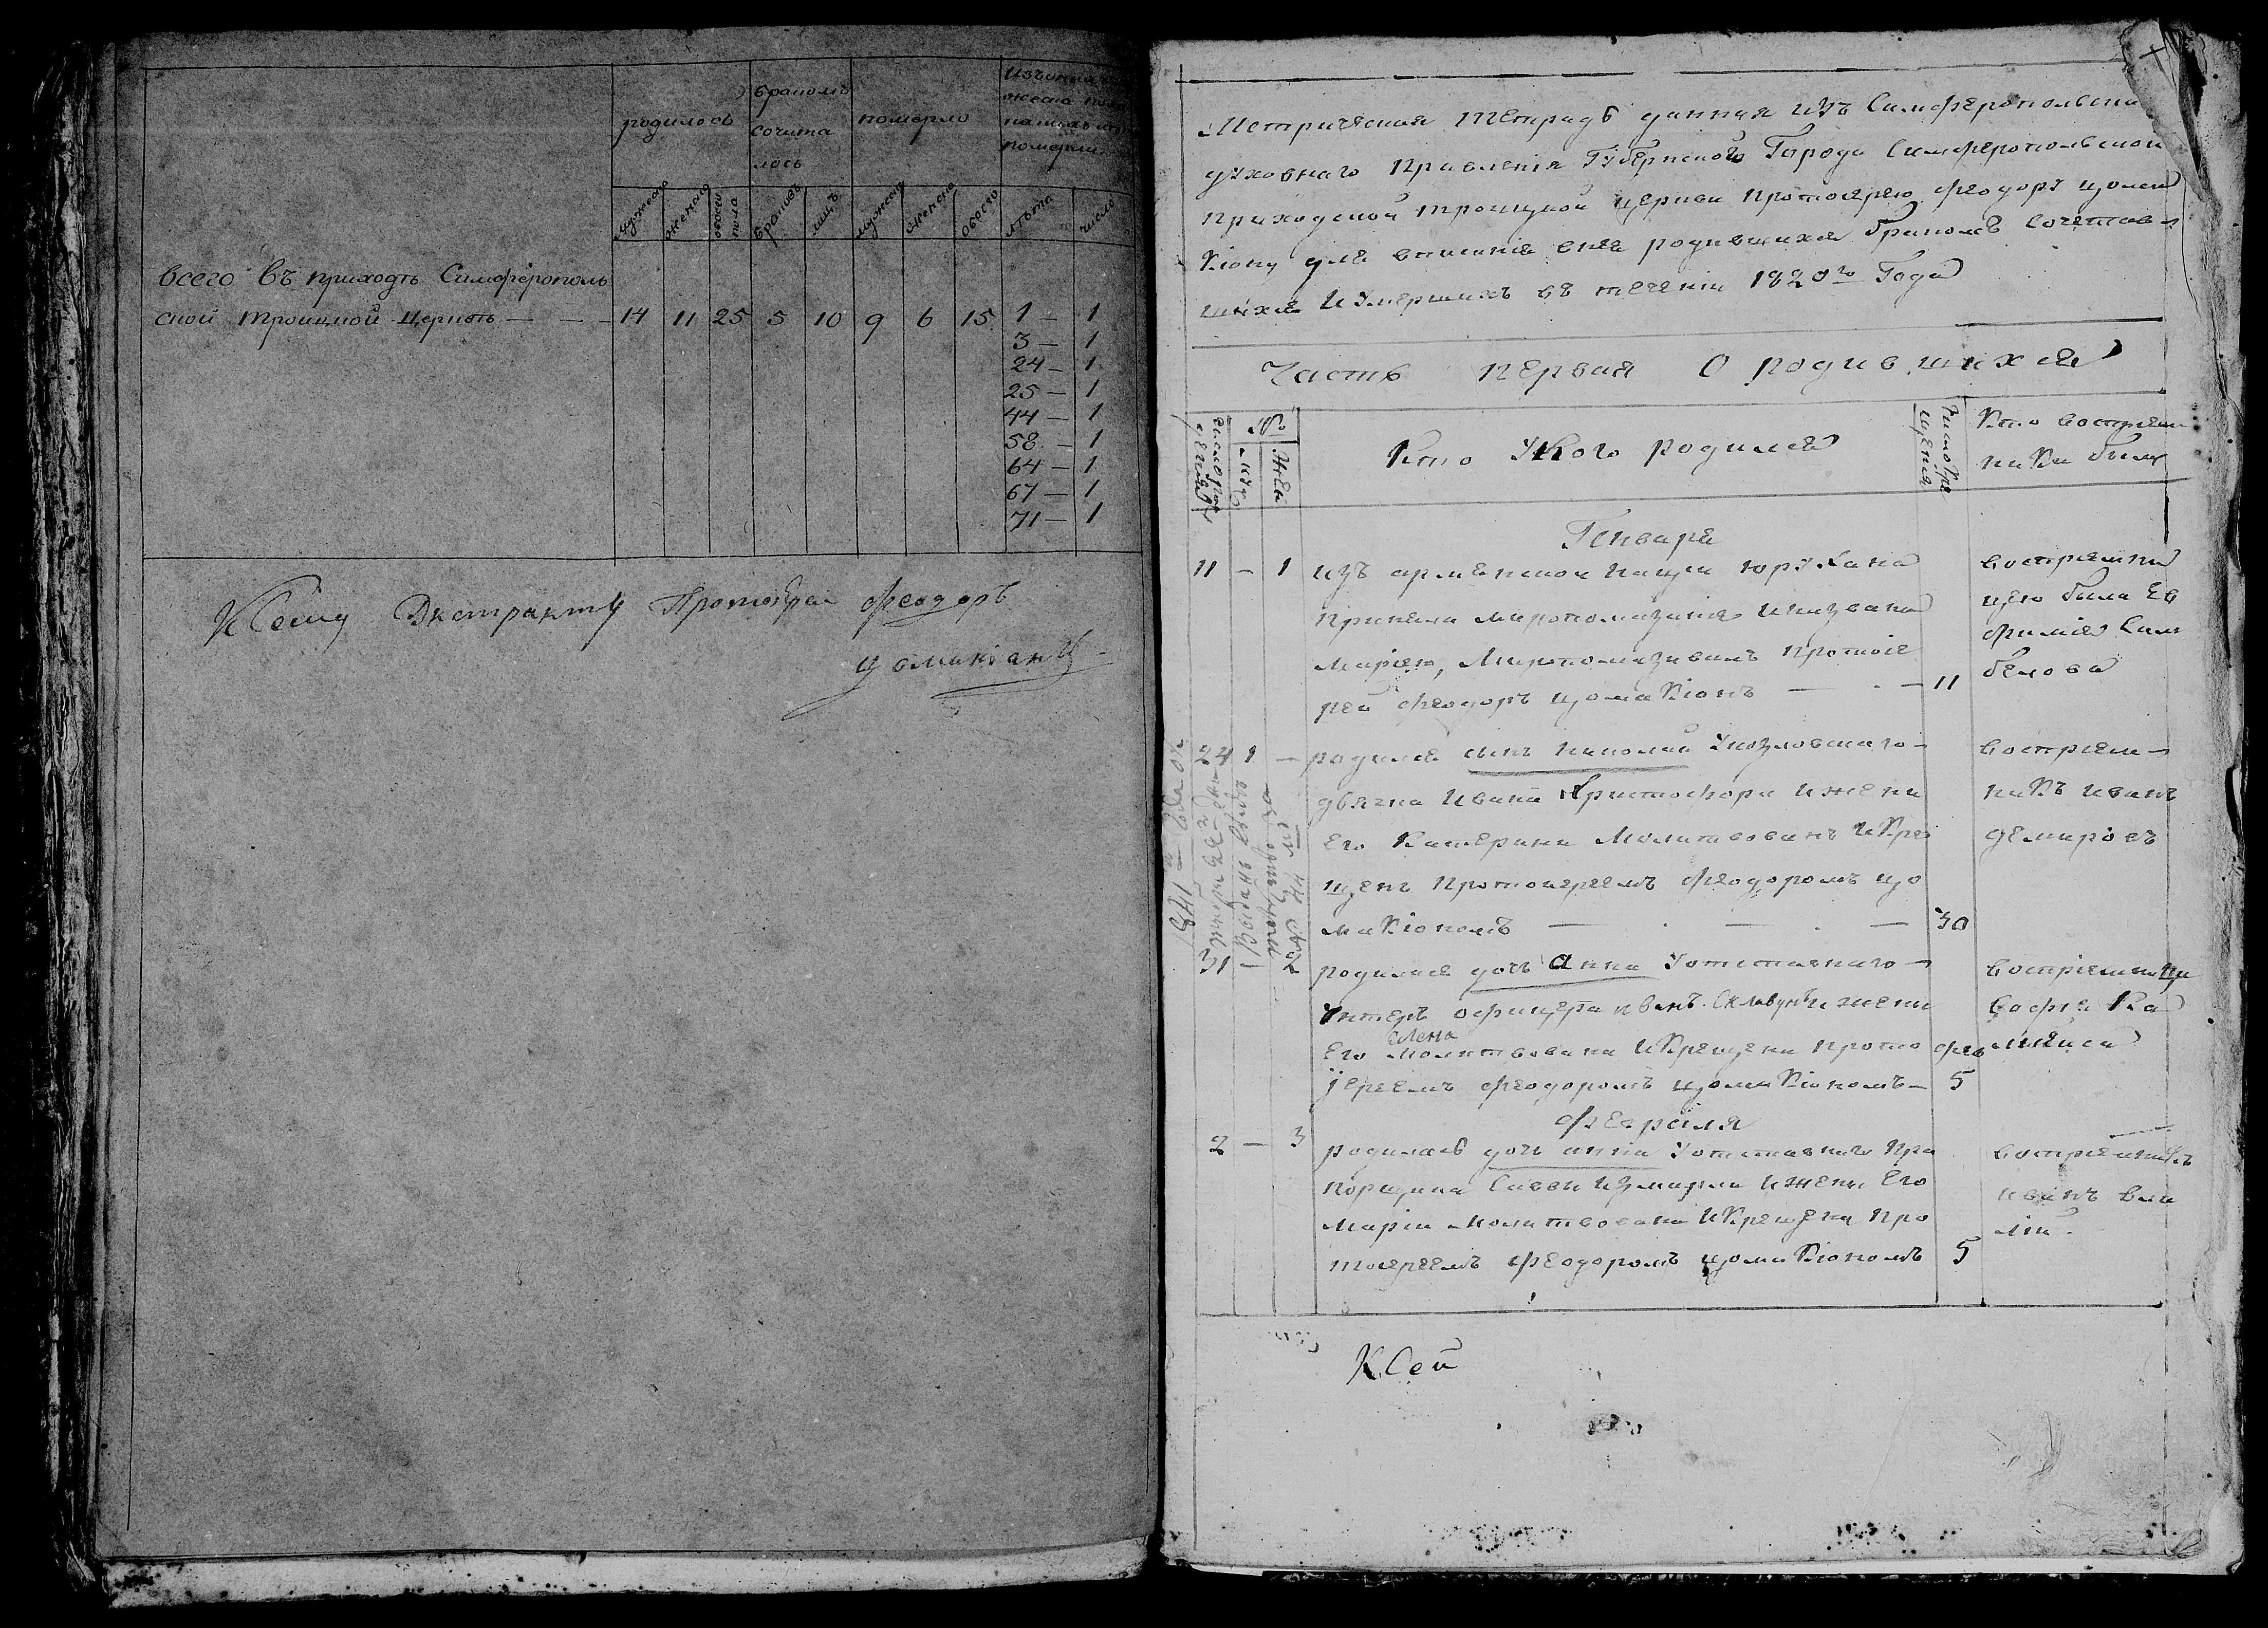 родилось
бракомъ
сочита
лось
померло
изъоныхъ
померли
мужеска
женска
обоего пола
браковъ
лицъ
мужеска
женска
обоего
лѣта
число
всего въ приходѣ Симферополь
ской троицкой Церквѣ — — — 14 11 25 5 10 9 6 15 1 — 1
3 — 1
24 — 1
25 — 1
44 — 1
58 — 1
64 — 1
67 — 1
71 — 1
К Сему Экстракту Протоерей Феодоръ
Цомакіонъ
Метрическая тетрадь данная изъ Симферопольскаго
духовнаго Правленія Губернскаго Города Симферопольской
приходской троицкой церкви протоіерею феодору цома
кіону для вписанія внея родившихся бракомъ сочетав
шихся И Умершихъ въ теченіи 1820го Года
Часть первая О родившихся
число рож
денія
№
муж
жен
Кто Укого родился
Число кре
щенія
Кто воспріем
ники были
Генваря
11 — 1 изъ арменской нации юрухана
приняла миропомазание и названа
маріею, Миропомазивалъ протоіе
рей феодоръ цомакіонъ — — 11
воспріемни
цею была Ев
фимія Сам
белова
24 1 — родился сынъ николай Укозловскаго
Ивана Христофора и жены
Его Катерины Молитвованъ и Кре
щенъ Протоиереемъ феодоромъ цо
макіономъ — — — 30
воспріем
никъ иванъ
демировъ
31 2 родилася дочь Анна Уотставнаго
Унтеръ офицера иванъ и жены
Его Елена молитвована и Крещена прото
іереемъ феодоромъ цомакіономъ — фев 5
воспріемница
Софія Ка
февраля
2 — 3 родилась дочь анна Уотставного пра
порщика Саввы Измирли и жены Его
Маріи молитвована и Крещена про
тоиереемъ феодоромъ цомакіономъ 5
воспріемникъ
иванъ
К Сей